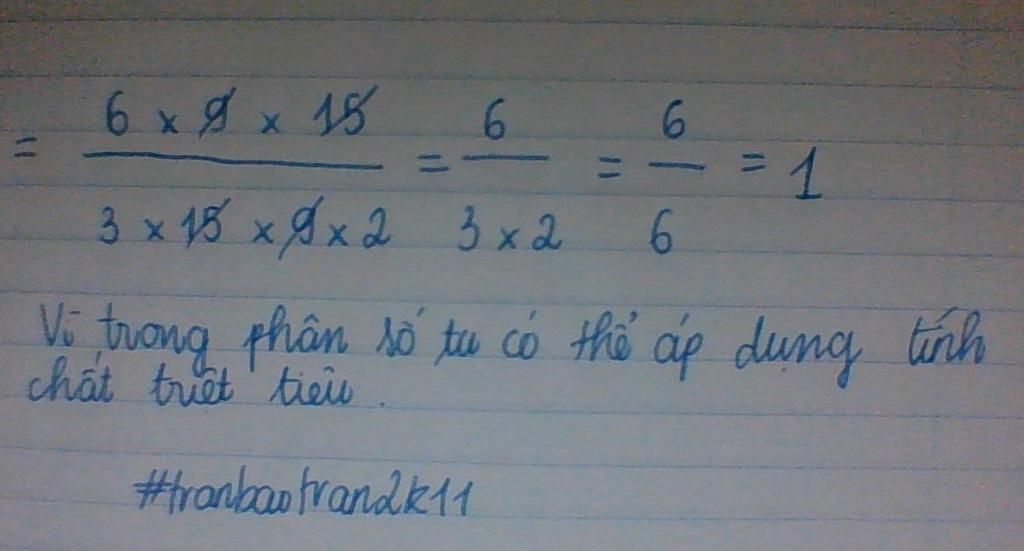 = 6 x 9 x 15 / 3 x 15 x 9 x 2 = 6 / 3 x 2 = 6 / 6 = 1
Vì trong phân số ta có thể áp dụng tính
chất triệt tiêu.
#tranbaotran2k11